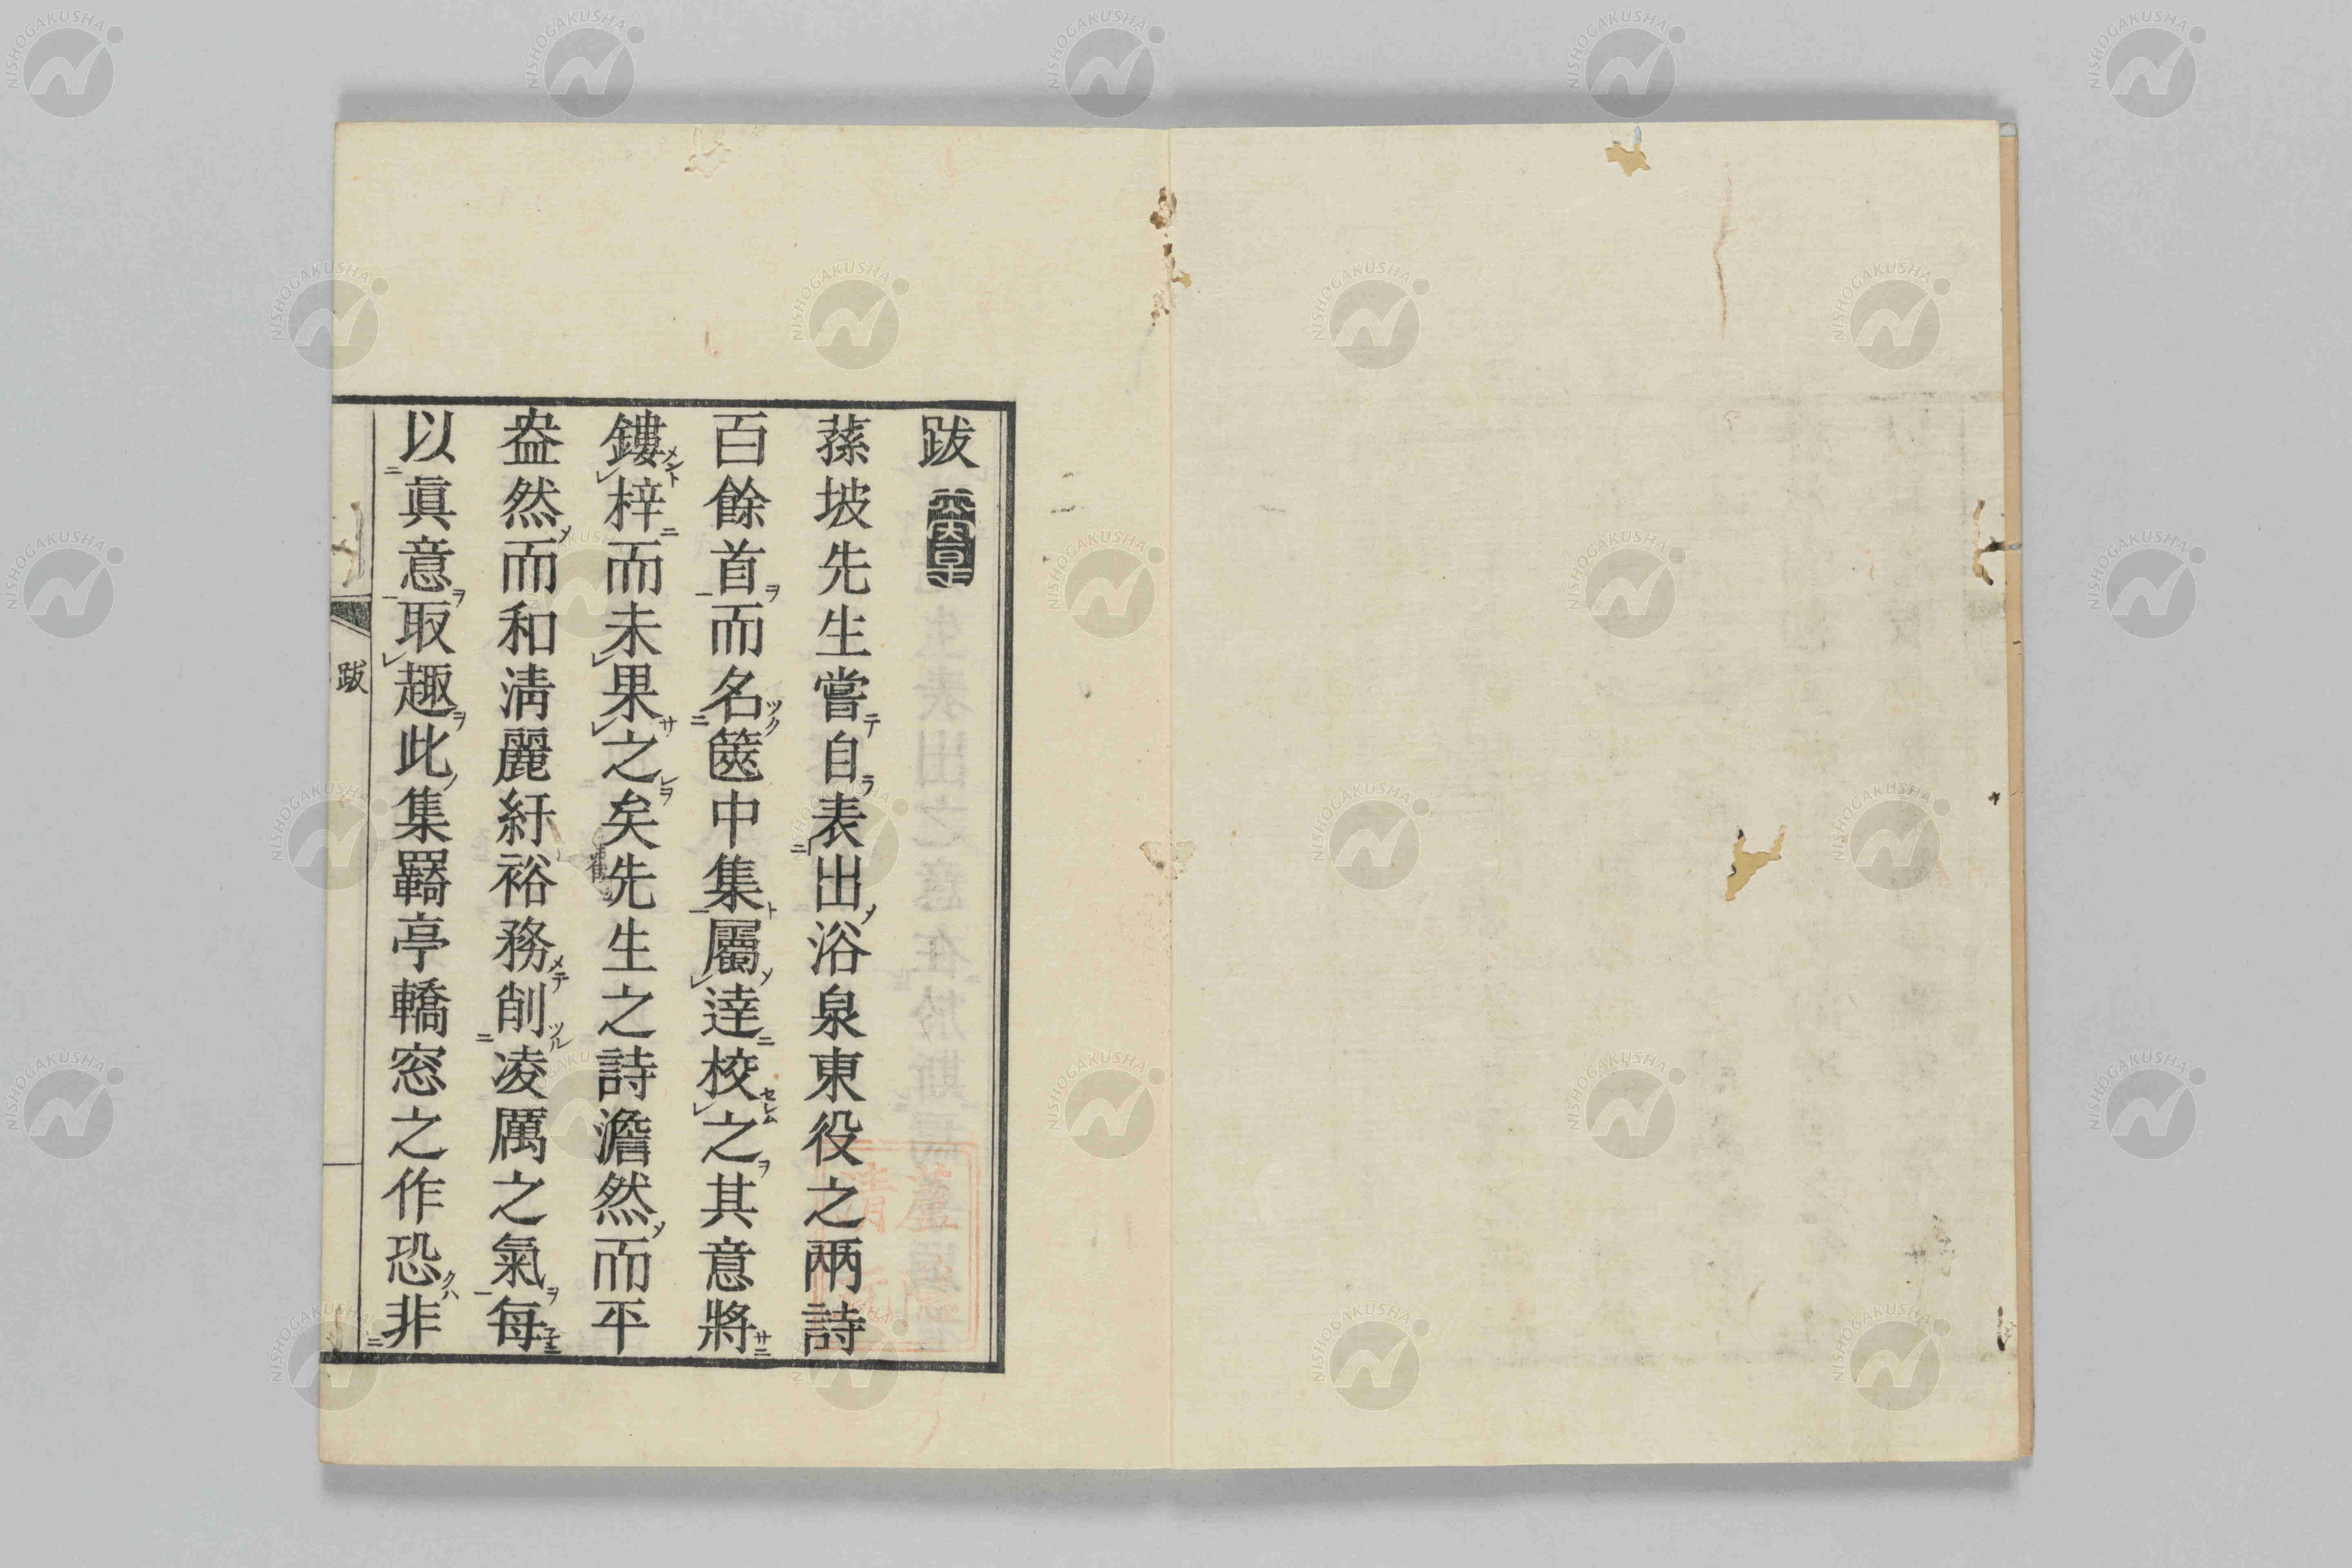 跋
蓀坡先生嘗自表出浴泉東役之兩詩
百餘首而名篋中集屬達校之其意將
鏤梓而未果之矣先生之詩澹然而平
盎然而和淸麗紆裕務削凌厲之氣每
以眞意取趣此集羇亭轎窓之作恐非
跋
NISHOGAKUSHA